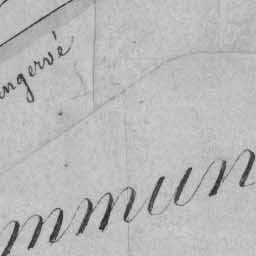 angervé
mmun